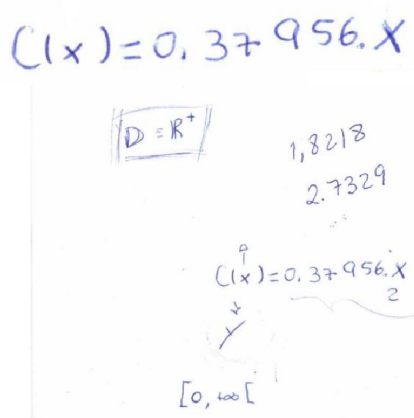 C(x)=0.37956.X
D = ℝ⁺
1,8218
2.7329
C(x)=0.37956.X
2
y
[0, +∞[